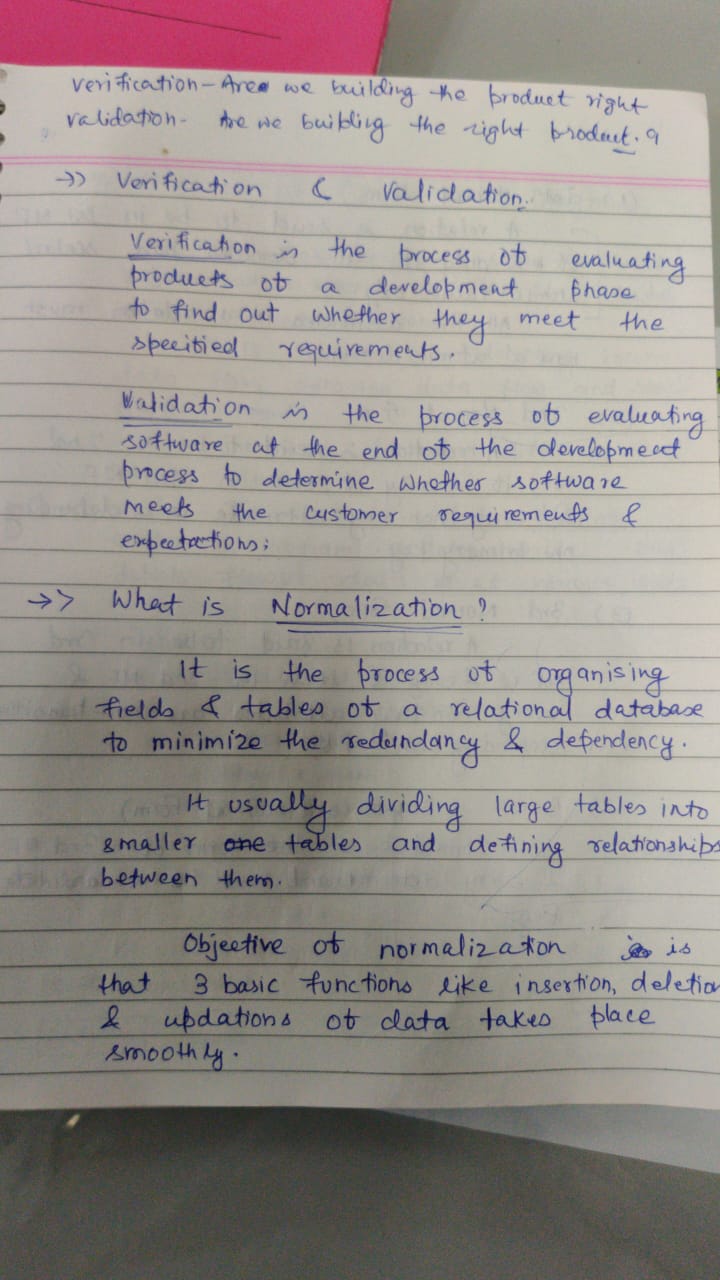 verification - Are we building the product right
validation - Are we building the right product. 9
->> Verification & validation.
Verification is the process of evaluating
products of a development phase
to find out whether they meet the
specified requirements.
Validation is the process of evaluating
software at the end of the development
process to determine whether software
meets the customer requirements &
expectations;
->> What is Normalization?
It is the process of organising
fields & tables of a relational database
to minimize the redundancy & dependency.
It usually dividing large tables into
smaller one tables and defining relationships
between them.
Objective of normalization is
that 3 basic functions like insertion, deletion
& updations of data takes place
smoothly.